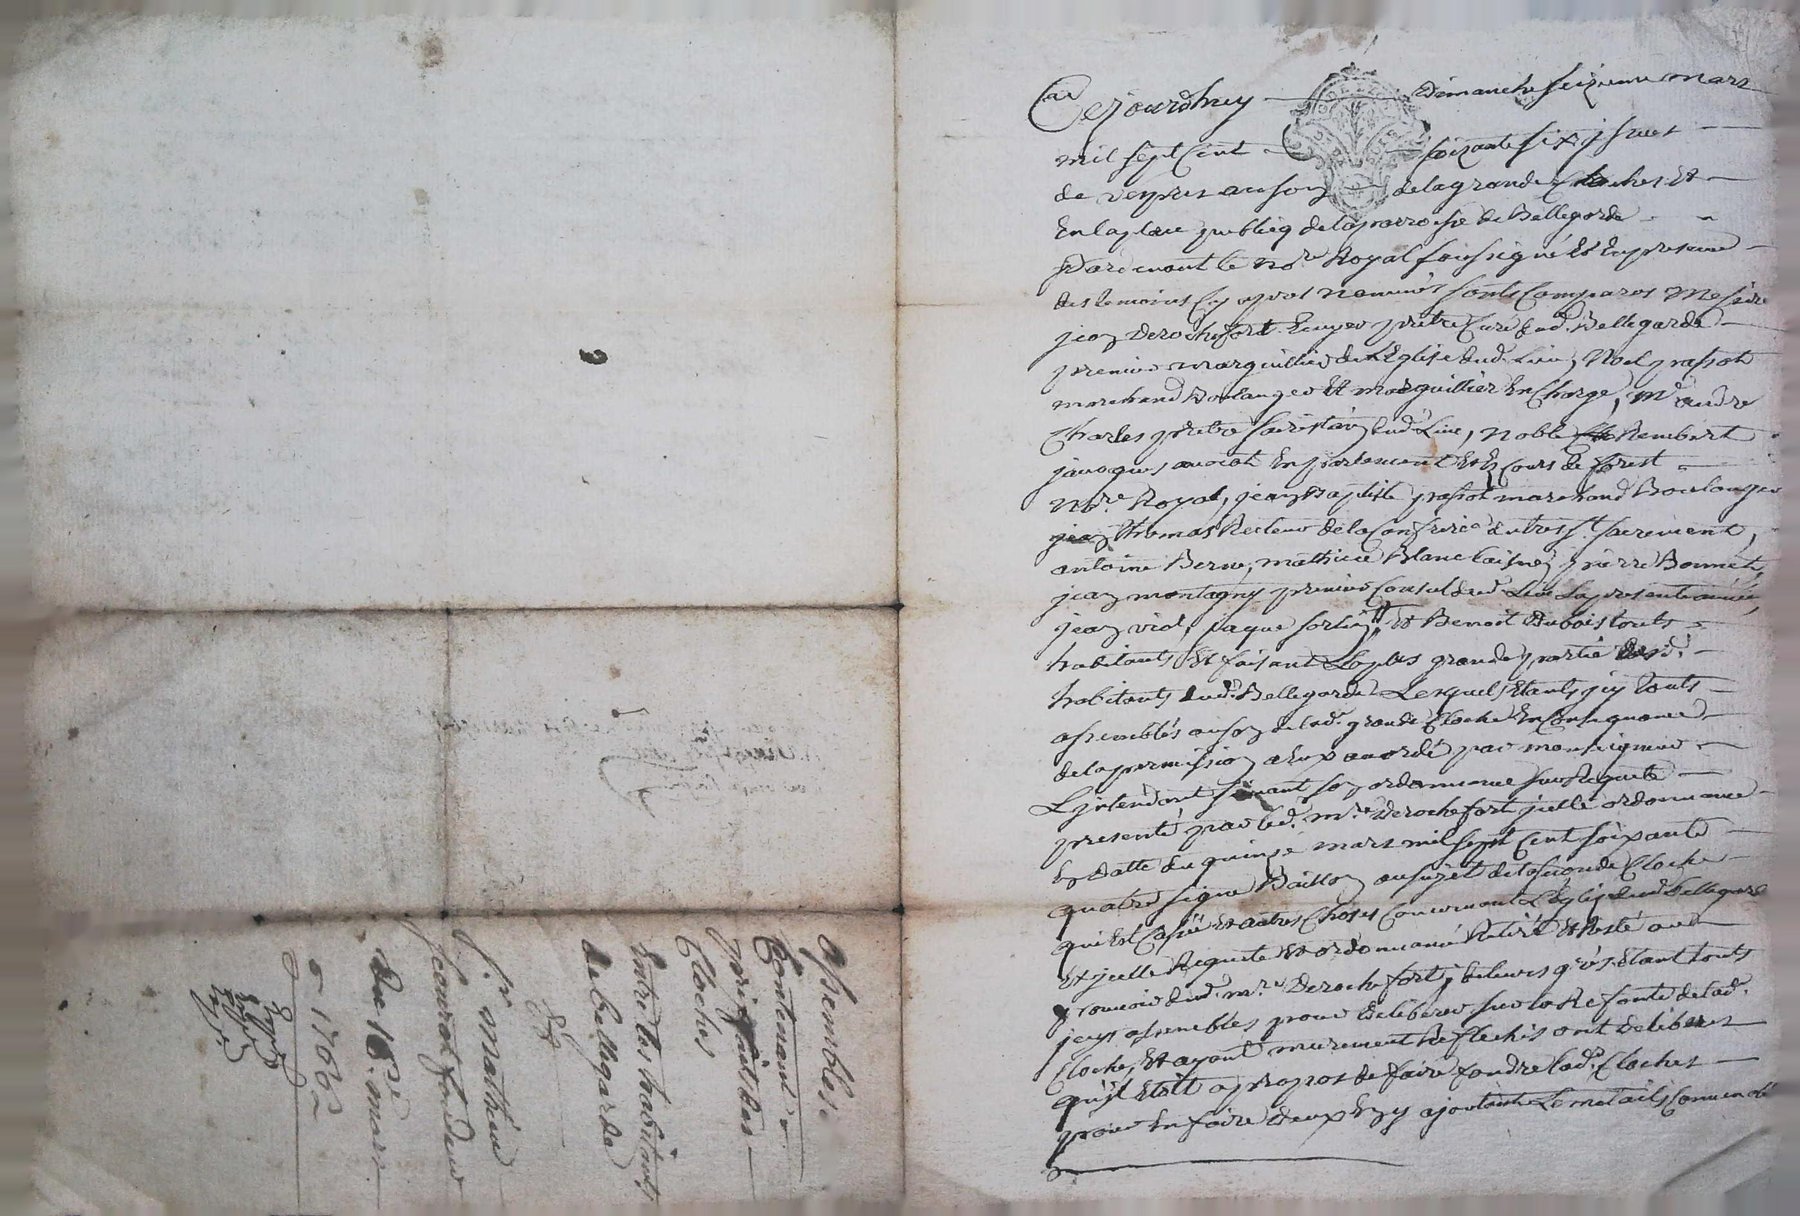 Cejourdhuy Dimanche seizieme mars
mil sept Cent soixante six jssues
de vespres au son de la grande Cloches Et
En la place publicq de la parroisse de Bellegarde
Pardevant le no.re Royal soussigné Et En presence
des temoins Cy apres nommés sonts Comparos Messire
jean Derochefort Ecuyer pretre Curé dud. Bellegarde
premier marguillier de L'Eglise dud. Lieu, Noel passot
marchand Boulanger Et marguillier En Charge, m.e andré
Charles pretre sacristain dud. Lieu, noble Rembert
jacques avocat En parlement Et Cours de forest
no.re Royal, jean Baptiste passot marchand Boulanger
jean thomas Recteur de la Confrerie du tres st. sacrement,
antoine Berne, mathieu Blanc laisné, pierre Bonnet,
jean montagny premier Consul dud. Lieu La presente année,
jean vial, jaque fortin, Et Benoit Dubois touts
habitants Et faisant La plus grande partie des d.
habitants dud. Bellegarde Lesquels Etants jcy touts
assemblés au son de lad. grande Cloche En Consequance
de la permission a Eux accordé par monseigneur
L'jntendant suivant son ordonnance sur Requete
presenté par led. m.re Derochefort jcelle ordonnance
En datte du quinze mars mil sept Cent soixante
quatre signé Baillon au sujet de la seconde Cloche
qui Est Cassée Et autres Choses Concernant L'Eglise dud. Bellegarde
Et jcelle Requete Et ordonnance Retiré Et Resté au
pouvoir dud. m.re Derochefort, lesquels Etant touts
jcy assembles pour deliberer sur la Refonte de lad.
Cloche, Et ayant murement Reflechis ont deliberer
qu'jl Etoit a propos de faire fondre lad. Cloches
pour En faire deux En y ajoutant Le metail Convenable
assemblée
Contenant
prix fait des
Cloches
Entre les habitants
de bellegarde
Et
s.r mathieu
fondeur
du 16.e mars
1766